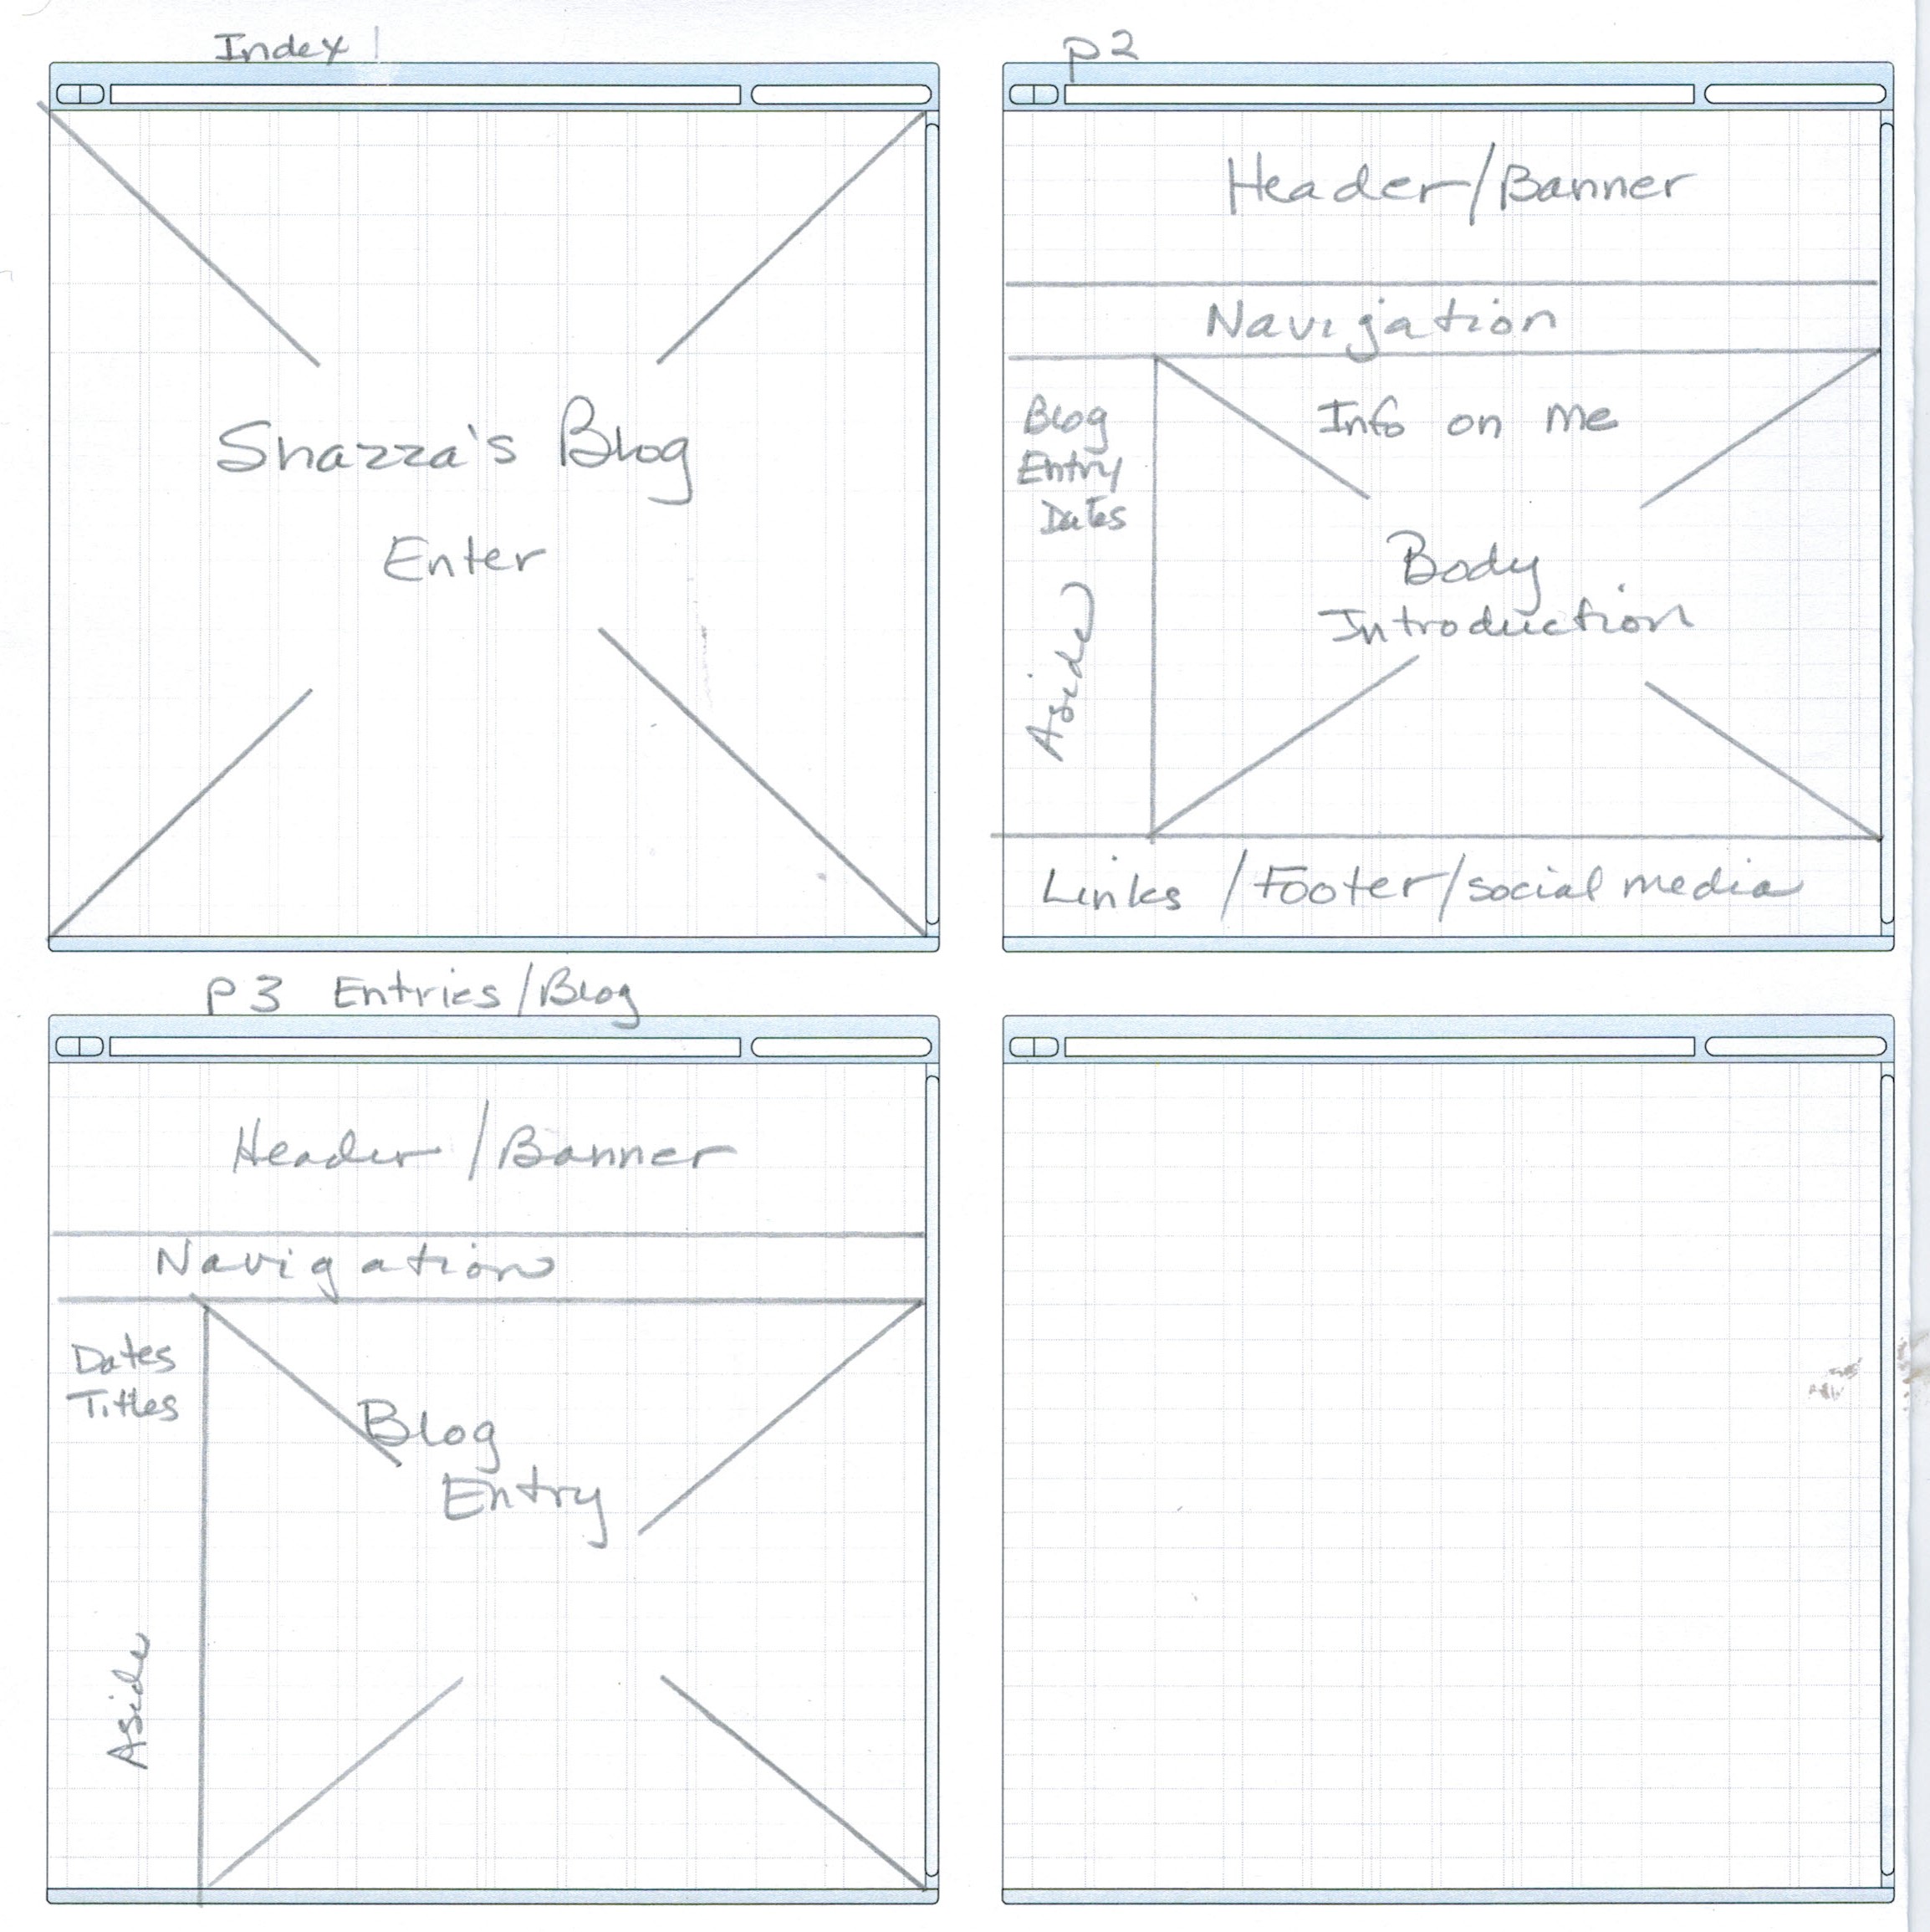 Index
Shazza's Blog
Enter
p2
Header/Banner
Navigation
Blog
Entry
Dates
Aside
Info on me
Body
Introduction
Links / Footer/social media
p3 Entries/Blog
Header/Banner
Navigation
Dates
Titles
Aside
Blog
Entry